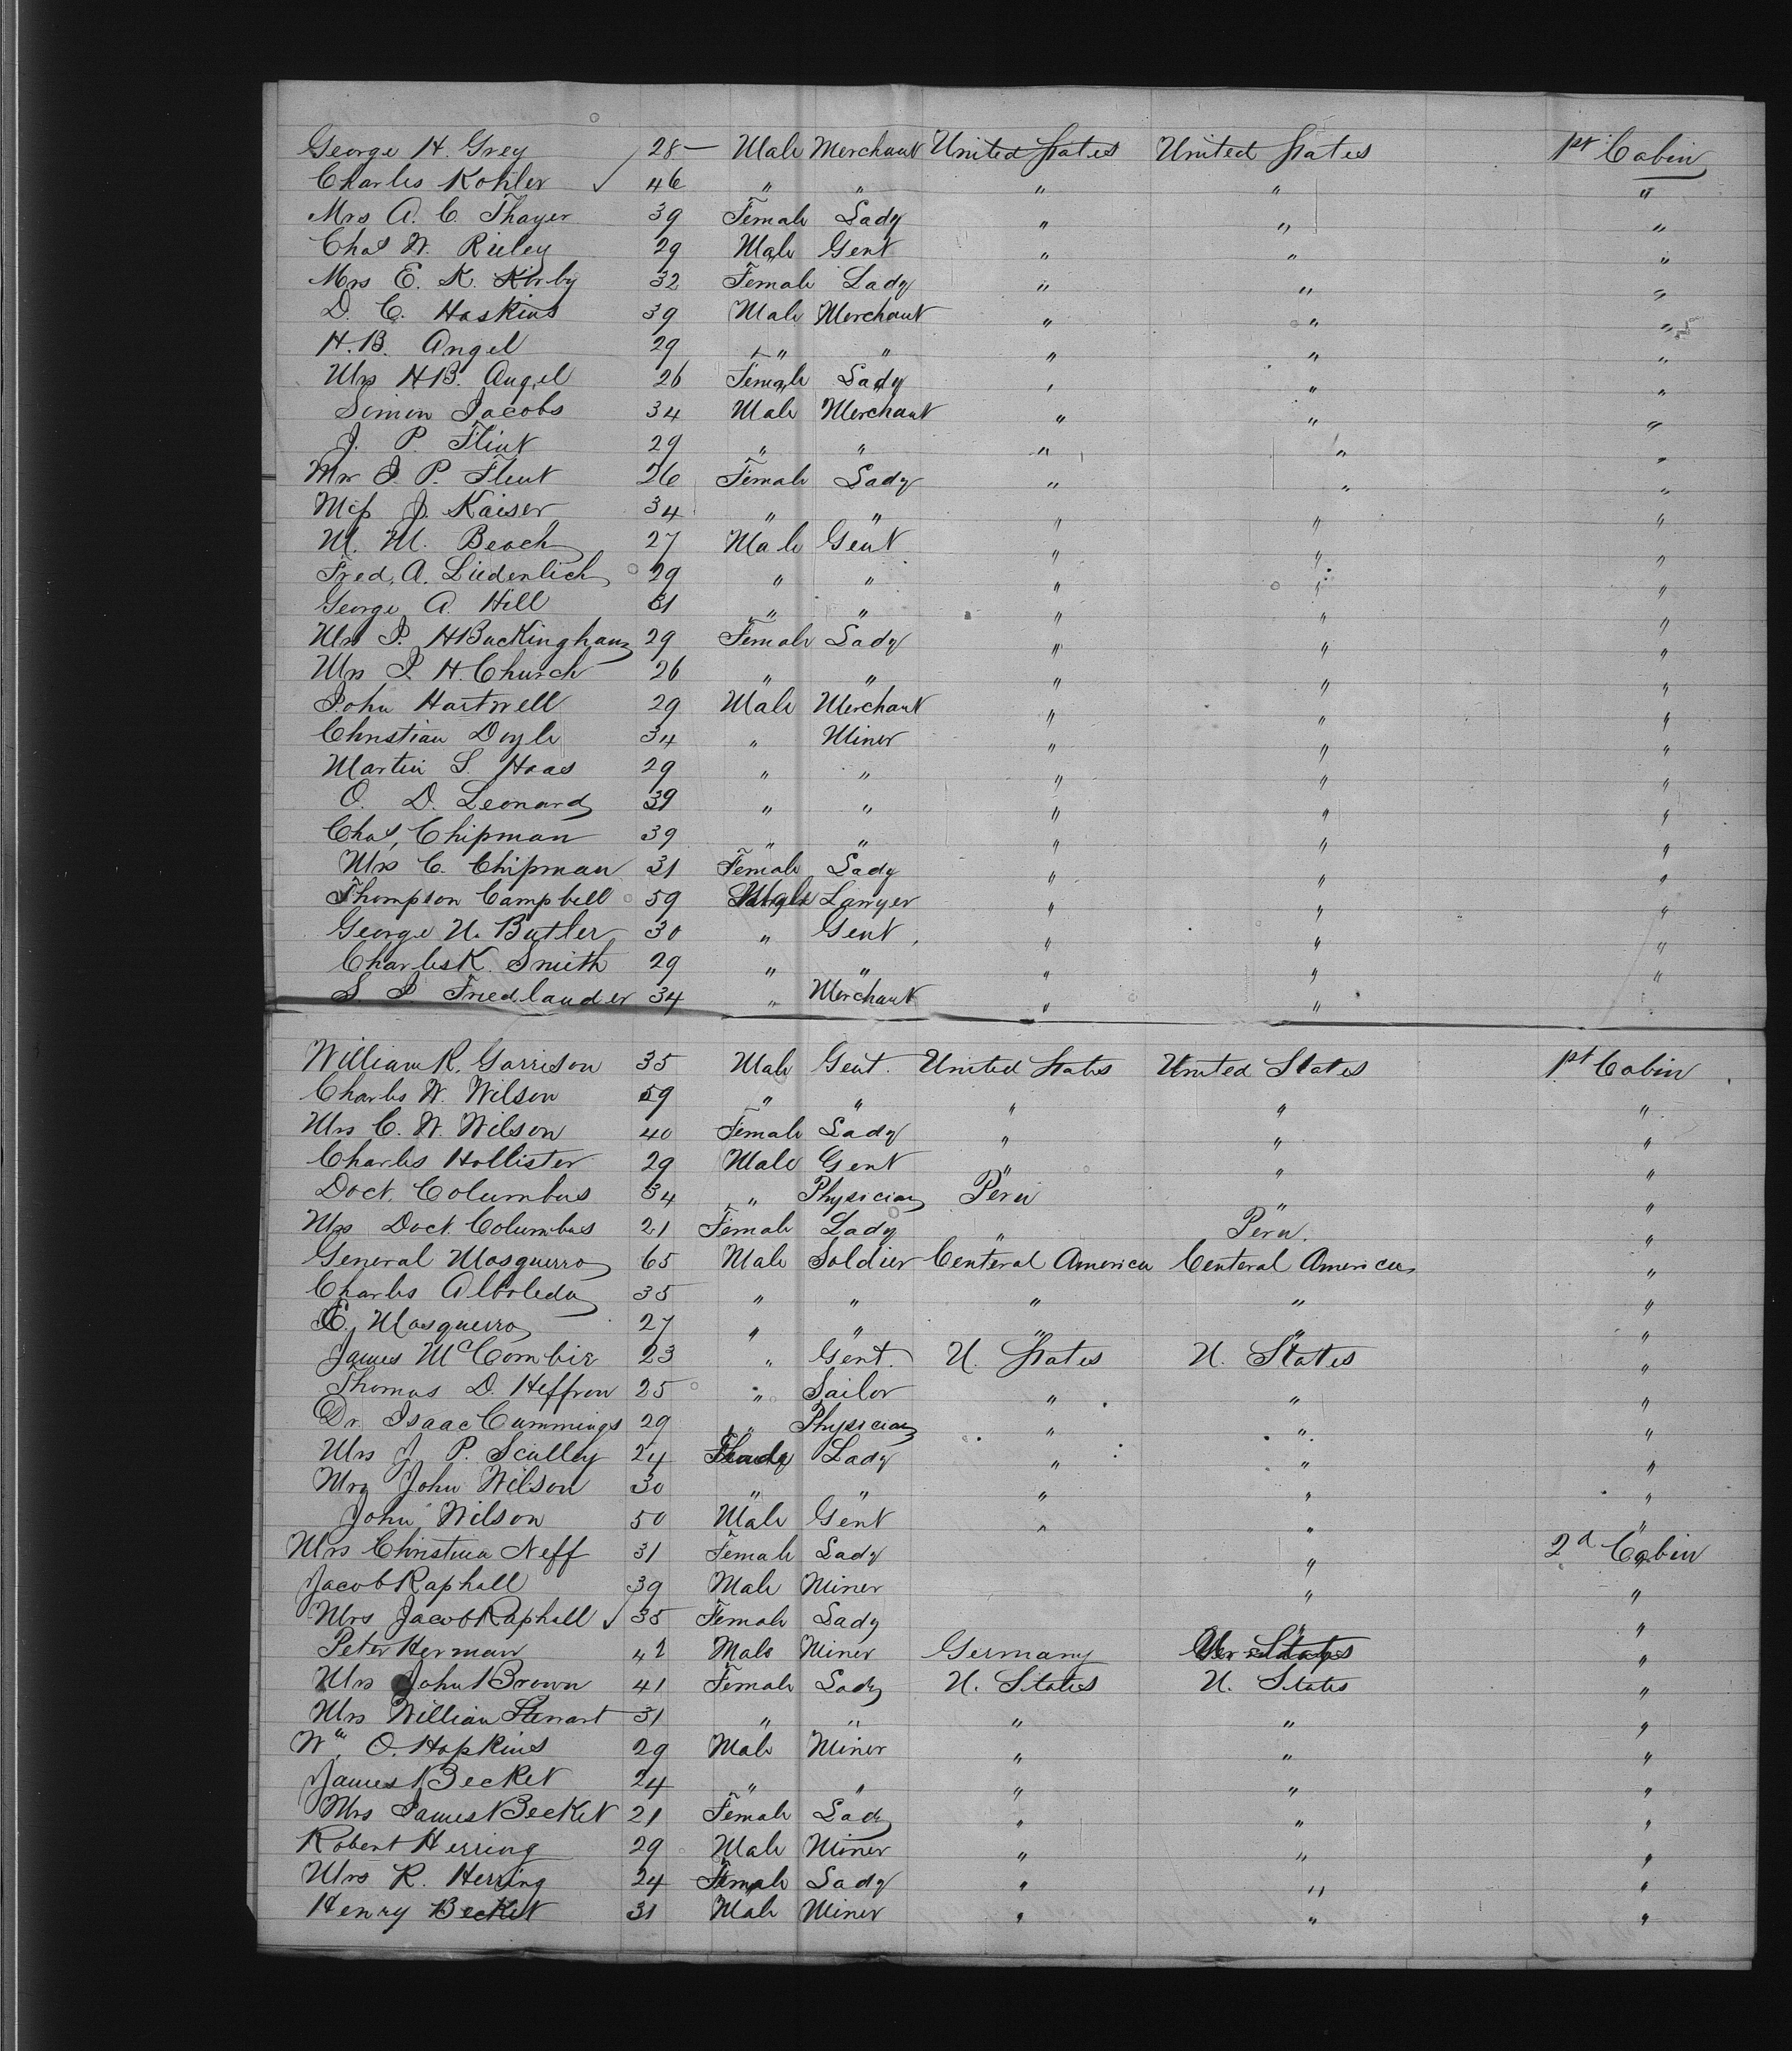 George H. Grey 28 — Male Merchant United States United States 1st Cabin
Charles Kohler ✓ 46 " " " " "
Mrs A. C. Thayer 39 Female Lady " " "
Chas W. Rieley 29 Male Gent " " "
Mrs E. K. Kirby 32 Female Lady " " "
D. C. Haskins 39 Male Merchant " " "
H. B. Angel 29 " " " " "
Mrs H B. Angel 26 Female Lady " " "
Simon Jacobs 34 Male Merchant " " "
J. P. Flint 29 " " " " "
Mrs J. P. Flint 26 Female Lady " " "
Miss J. Kaiser 34 " " " " "
M. M. Beach 27 Male Gent " " "
Fred, A. Liedenlich 29 " " " " "
George A. Hill 31 " " " " "
Mrs J. H Buckingham 29 Female Lady " " "
Mrs J. H. Church 26 " " " " "
John Hartwell 29 Male Merchant " " "
Christian Doyle 34 " Miner " " "
Martin S. Haas 29 " " " " "
O. D. Leonard 39 " " " " "
Chas, Chipman 39 " " " " "
Mrs C. Chipman 31 Female Lady " " "
Thompson Campbell 59 Lawyer " " "
George N. Butler 30 " Gent " " "
Charles K. Smith 29 " " " " "
S J Friedlander 34 " Merchant " "
William R. Garrison 35 Male Gent. United States United States 1st Cabin
Charles W. Wilson 59 " " " " "
Mrs C. W. Wilson 40 Female Lady " " "
Charles Hollister 29 Male Gent " " "
Doct. Columbus 34 " Physician Peru " "
Mrs Doct. Columbus 21 Female Lady " Peru. "
General Mosquerro 65 Male Soldier Centeral America Centeral America "
Charles Alboleda 35 " " " " "
E. Mosquerro 27 " " " " "
James McCombie 23 " Gent. U. States U. States "
Thomas D. Heffron 25 " Sailor " " "
Dr. Isaac Cummings 29 " Physician " " "
Mrs J. P. Sculley 24 Lady " " "
Mrs John Wilson 30 " " " " "
John Wilson 50 Male Gent " " "
Mrs Christina Neff 31 Female Lady " 2d Cabin
Jacob Raphall 39 Male Miner " "
Mrs Jacob Raphall ✓ 35 Female Lady " "
Peter Herman 42 Male Miner Germany States "
Mrs John Brown 41 Female Lady U. States U. States "
Mrs William Stewart 31 " " " " "
Wm. O. Hopkins 29 Male Miner " " "
James Becket 24 " " " " "
Mrs James Becket 21 Female Lady " " "
Robert Herring 29 Male Miner " " "
Mrs R. Herring 24 Female Lady " " "
Henry Becket 31 Male Miner " " "